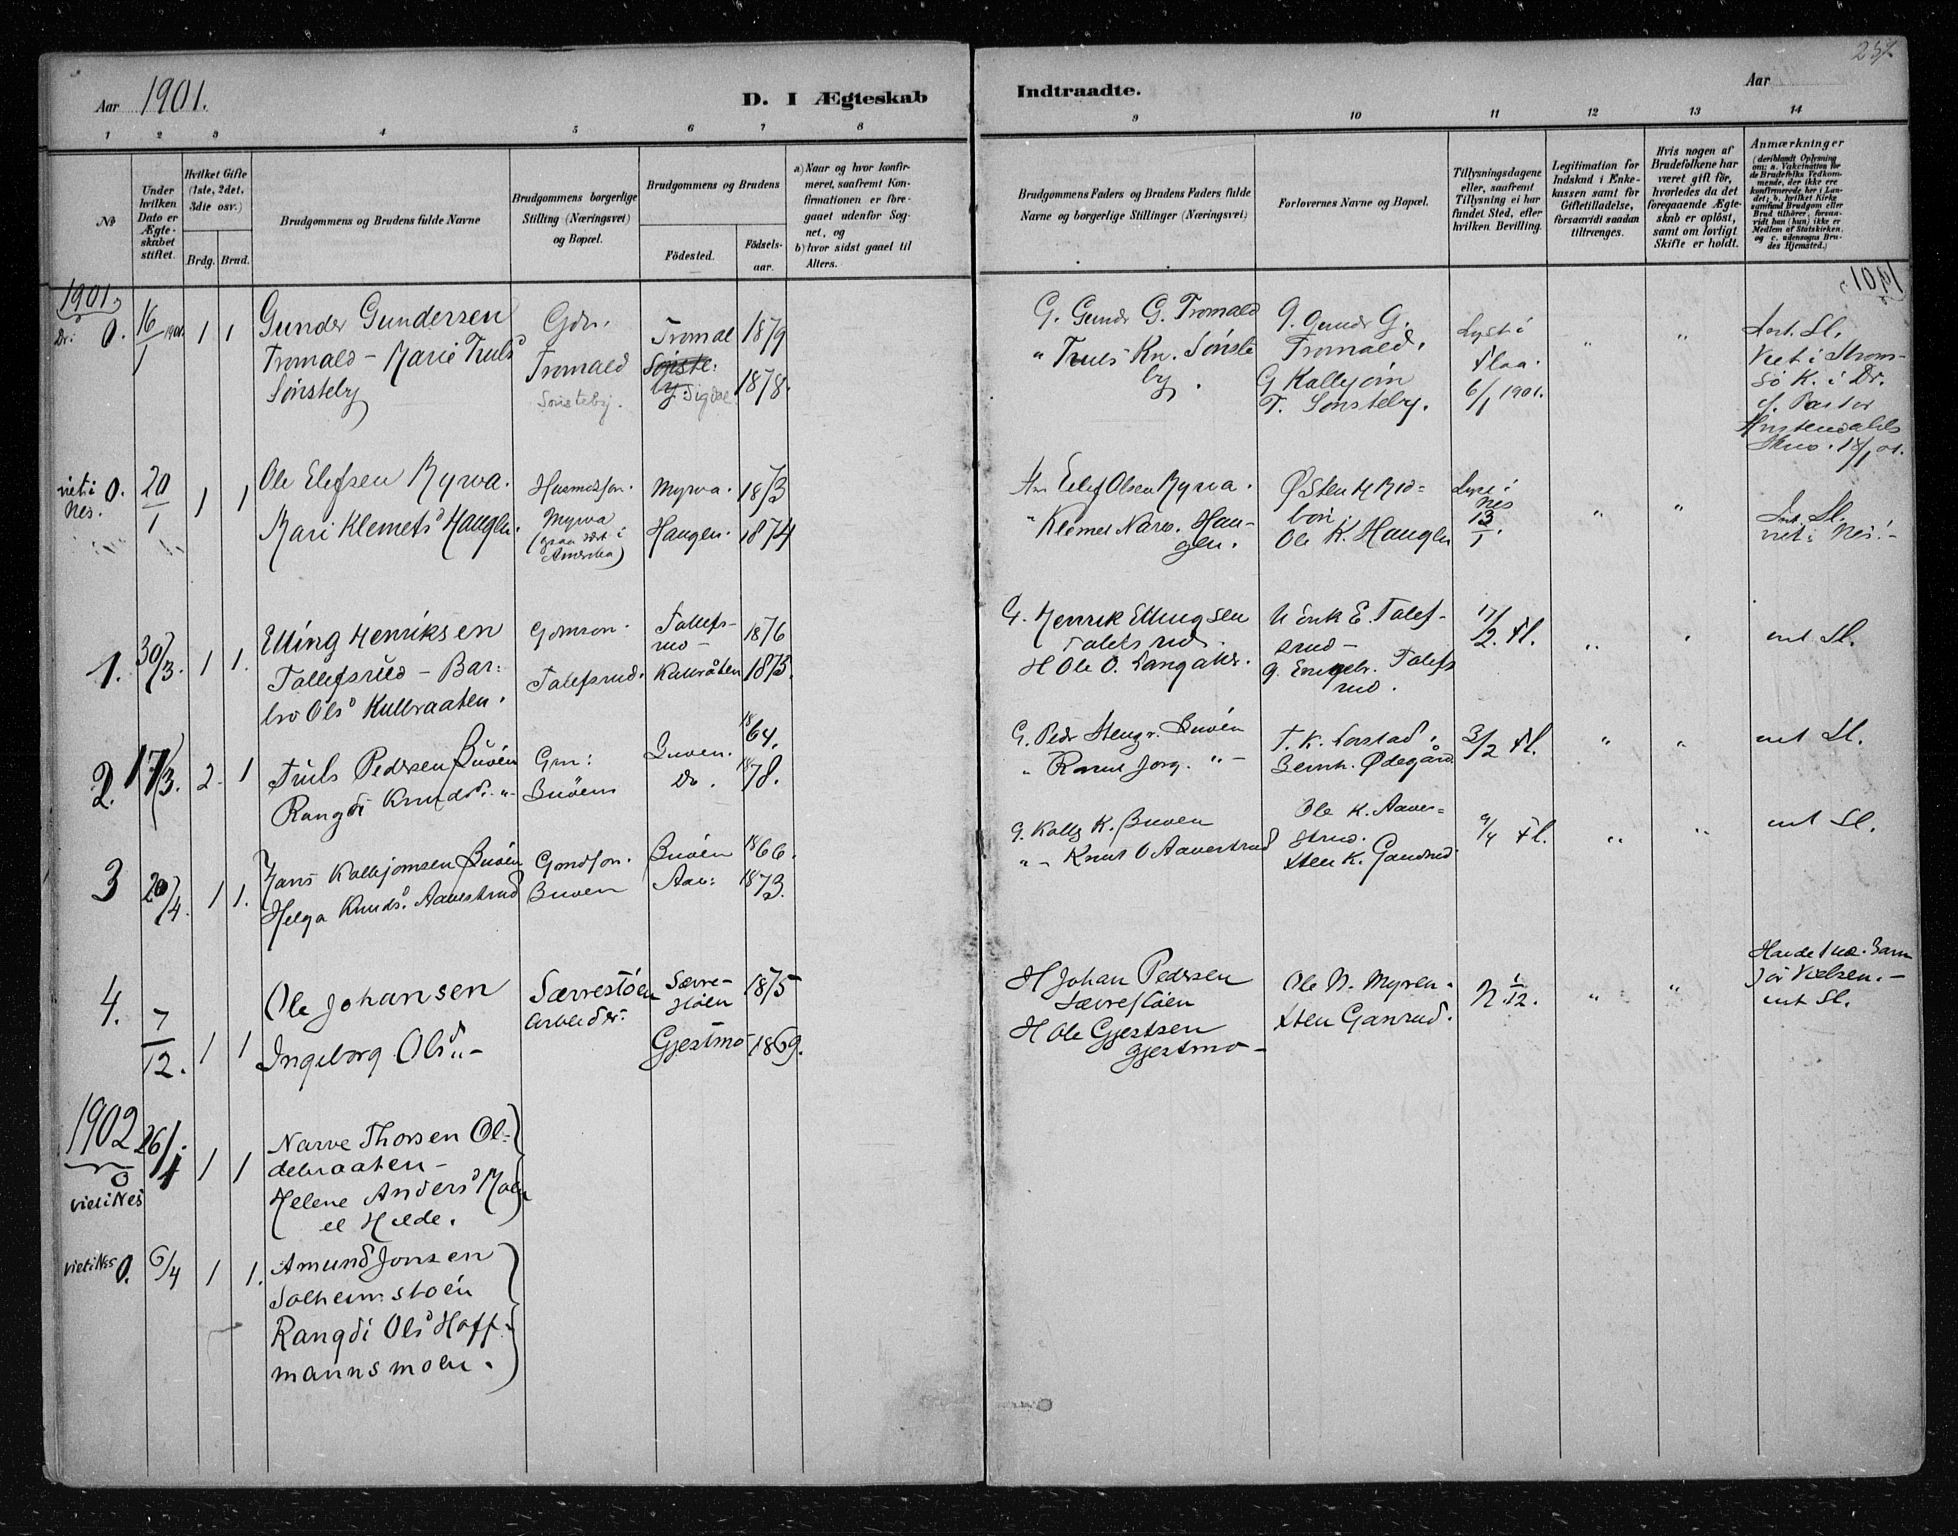 Aar 1901.
D. I Ægteskab
Indtraadte.
Aar
1 2 3 4 5 6 7 8
9 10 11 12 13 14
No
Under hvilken Dato er Ægte-skabet stiftet.
Hvilket Gifte (1ste, 2det, 3die osv.)
Brdg. Brud.
Brudgommens og Brudens fulde Navne
Brudgommens borgerlige Stilling (Næringsvei) og Bopæl.
Brudgommens og Brudens
Födested.
Födsels-aar.
a) Naar og hvor konfir-meret, saafremt Kon-firmationen er fore-gaaet udenfor Sog-net, og
b) hvor sidst gaaet til Alters.
Brudgommens Faders og Brudens Faders fulde Navne og borgerlige Stillinger (Næringsvei)
Forlovernes Navne og Bopæl.
Tillysningsdagene eller, saafremt Tillysning ei har fundet Sted, efter hvilken Bevilling.
Legitimation for Indskud i Enke-kassen samt for Giftetilladelse, forsaavidt saadan tiltrænges.
Hvis nogen af Brudefolkene har været gift för, hvorledes da det foregaaende Ægte-skab er oplöst, samt om lovligt Skifte er holdt.
Anmærkninger
(deriblandt Oplysning om: a. Vakcination for de Brudefolks Vedkom-mende, der ikke ere konfirmerede her i Lan-det; b. hvilket Kirke-samfund Brudgom eller Brud tilhörer, forsaa-vidt han (hun) ikke er Medlem af Statskirken, og c. udensogns Bru-des Hjemsted.)
1901
1901
Dr: 0. 16/1 1901 1 1
Gunder Gundersen
Tromald - Marie Truls
Sönsteby
Gdr.
Tromald
Sönsteby.
Tromal 1879
Sönste-
by Sigdal 1878.
G. Gundr G. Tromald
" Truls Kn. Sönste
by.
G. Gundr G.
Tromald.
G Kallejörn
T. Sönsteby.
Lyst i
Flaa.
6/1 1901.
" "
Att. Sl.
Viet i Ströms-
sö K. i Dr.
af Pastor
viet i Nes. 0. 20/1 1 1
Ole Elefsen Myrva.
Mari Klemets Haugen.
Husmdsön.
Myrva
Amerika)
Myrva. 1873
Haugen. 1874
Elef Olsen Myrva.
" Klemet Narv. Hau-
gen.
Östen H Rud-
Ole K. Haugen
Lyst i
Nes
13/1.
" "
Att. Sl.
viet i Nes. -
1. 30/3. 1 1.
Elling Henriksen
Tollefsrud - Bar-
bro Ols Kullbraaten.
Gdmsön.
Tolefsrud.
Tollefs-
rud - 1876
1875.
G. Henrik Ellingsen
Tolefsrud.
H Ole O. Langaker.
Henrik E. Tolef-
srud -
G. Engebr. Tolefs
rud.
17/2. Fl.
att Sl.
2. 17/3. 2. 1
Truls Pedersen Buöen
Rangdi Knuds. "
Gm:
Buöen
Buöen. 1864.
Do. 1878.
G. Pedr Steng. Buöen
" Knut Jorg. " -
T. K. Sorstad.
Bernh. Ødegård
3/2 Fl.
" "
att Sl.
3 20/4. 1 1.
Hans Kallejörnsen Buöen
Helga Knuds. Aavestrud
Gmdsön.
Buöen
Buöen 1866.
Aav: 1873.
G. Kallj K. Buöen
" - Knut O Aavestrud
Ole K. Aave-
strud.
Sten K. Gandrud.
9/4 Fl.
" "
att Sl.
4. 7/12. 1 1
Ole Johansen
Ingeborg Ols " -
Særrestöen
Arbeider.
Særre-
stöen 1875
Gjestmo 1869.
H Johan Pedersen
Særrestöen
H Ole Gjestsen
Gjestmo -
Ole N. Myren.
Sten Ganrud.
N. 1/12.
" "
Havde 1 ua. Barn
för Vielsen. -
att Sl.
1902
0 26/1 1 1
viet i Nes
Narve Thorsen Ol-
debraaten -
Helene Anders Moen
el Hilde.
viet i Nes 0. 6/4 1 1.
Amund Jonsen
Solheimstöen
Rangdi Ols Hoff-
mannsmoen.